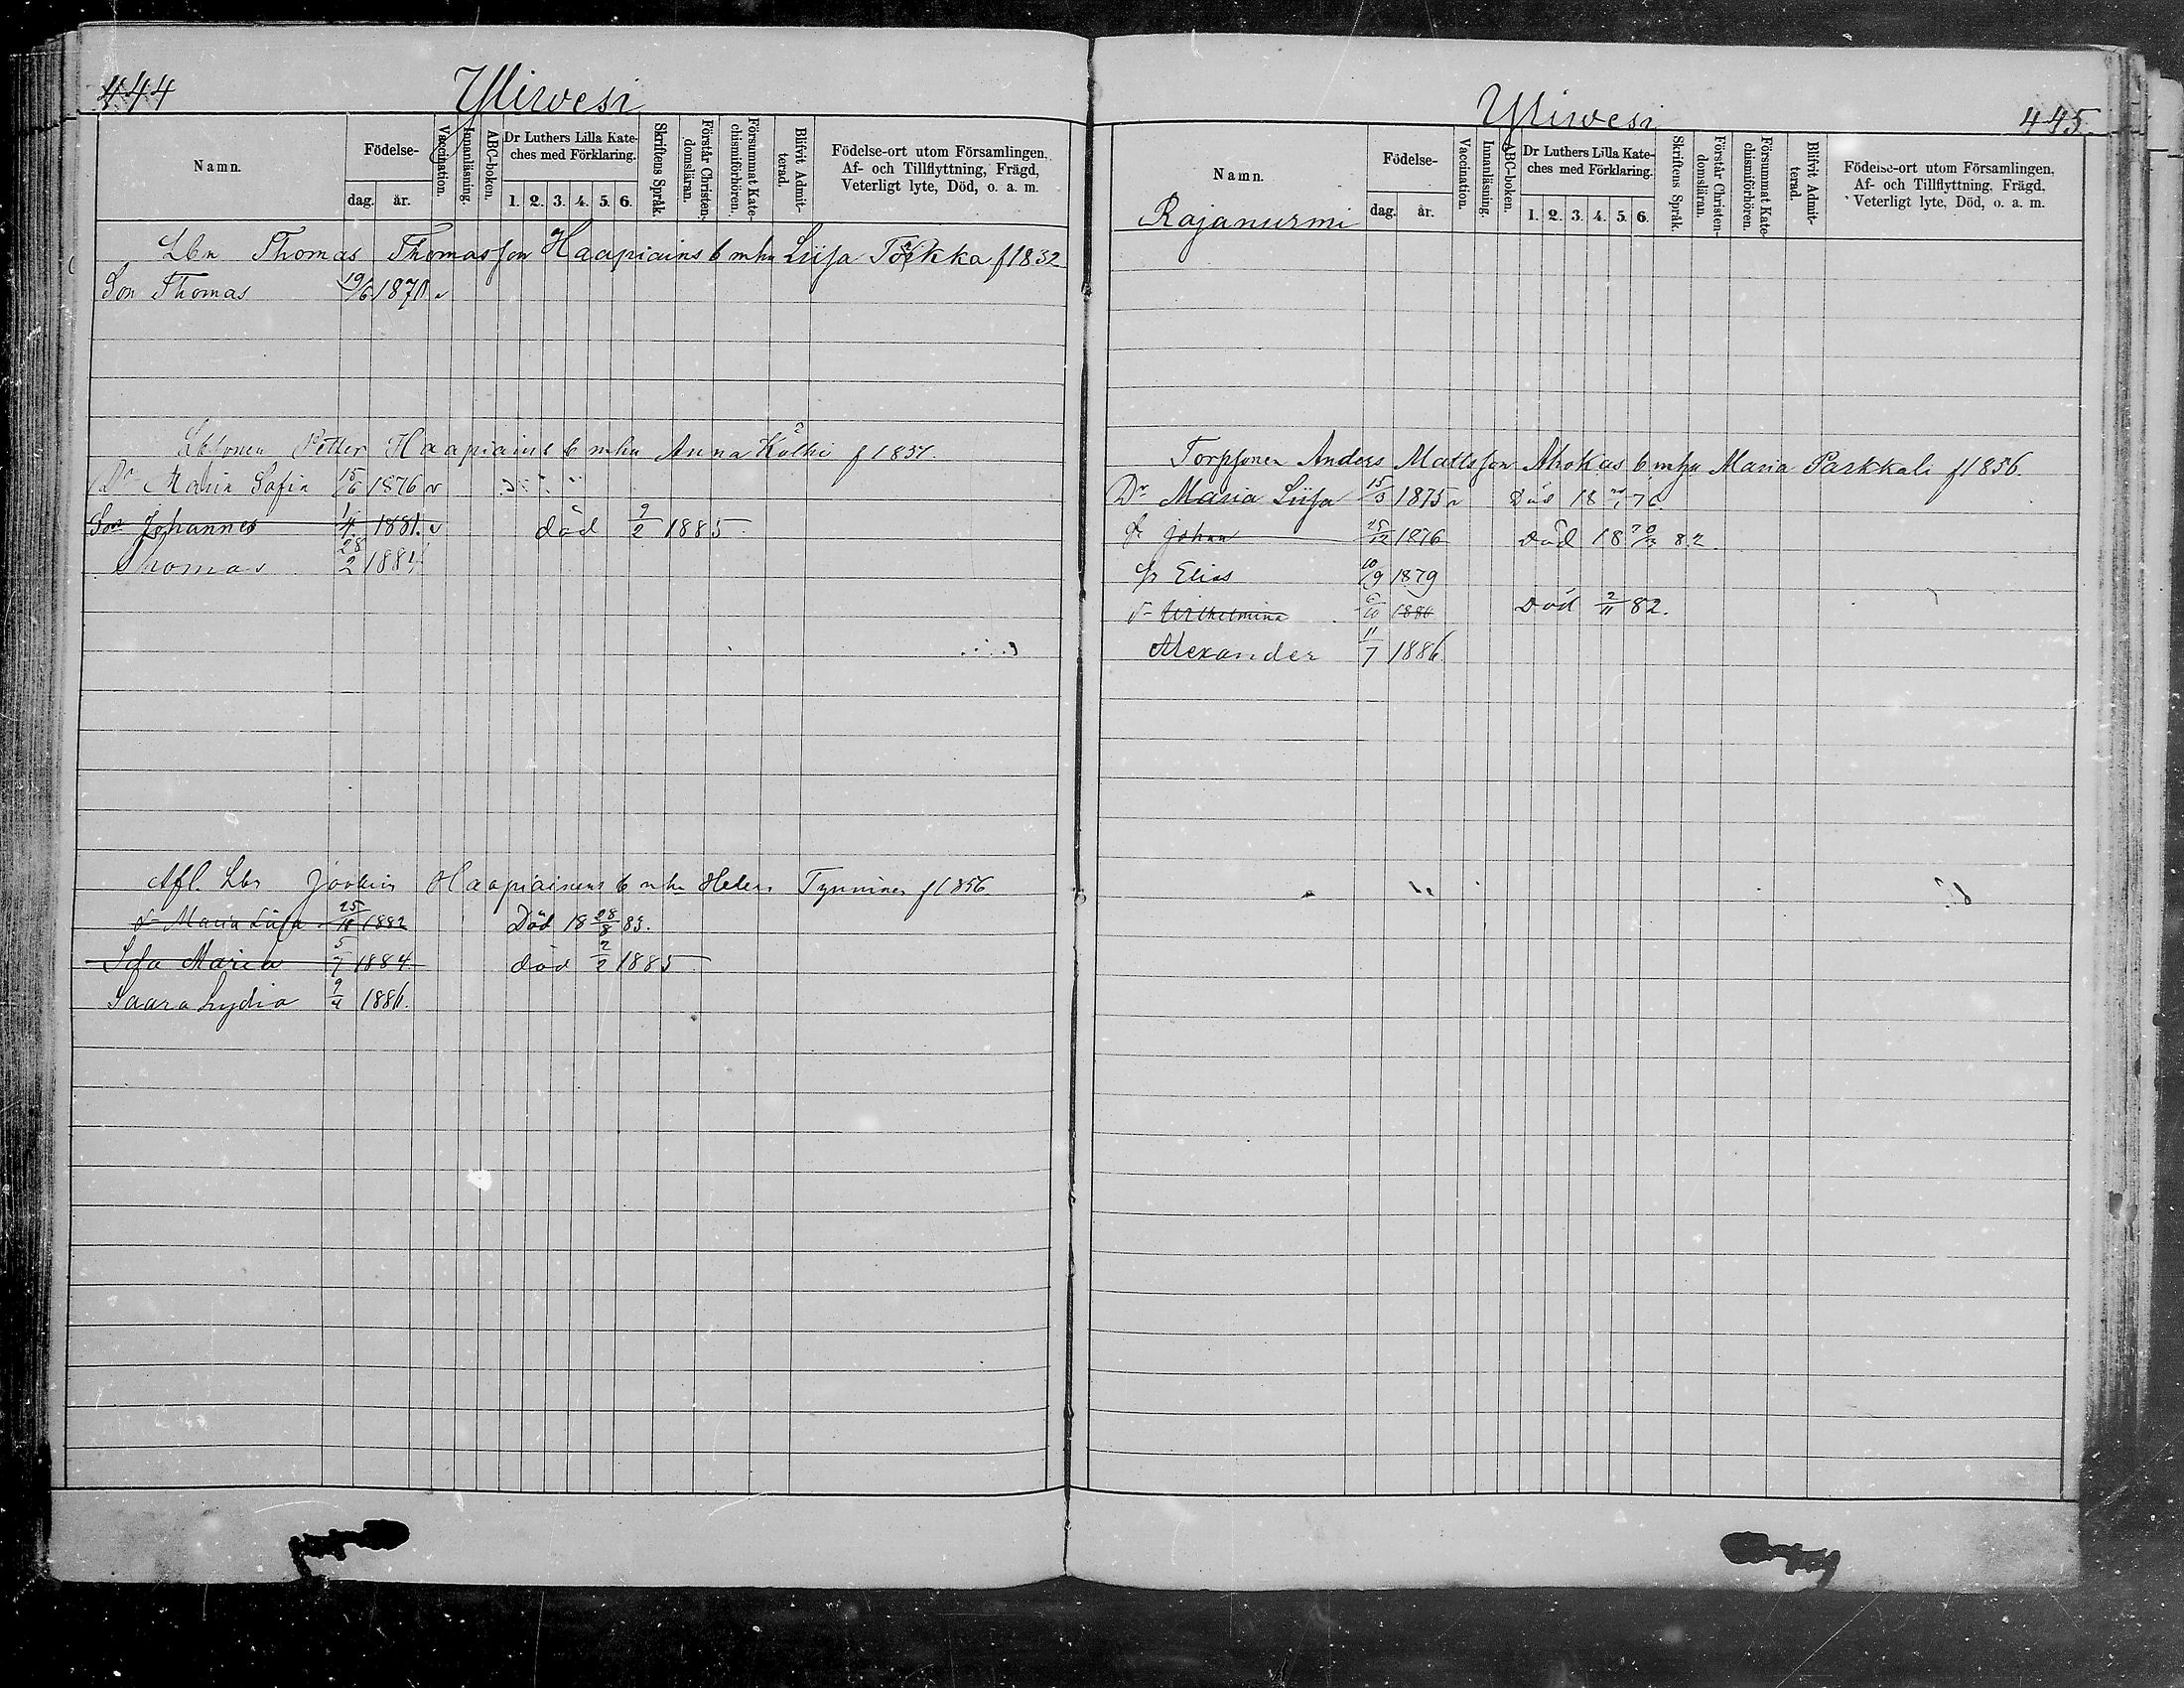 444
Yliwesi
Namn.
Födelse-
dag.
år.
Vaccination.
Innanläsning.
ABC-boken.
Dr Luthers Lilla Kate-
ches med Förklaring.
1. 2. 3. 4. 5. 6.
Skriftens Språk.
Förstår Christen-
domsläran.
Försummat Kate-
chismiförhören.
Blifvit Admit-
terad.
Födelse-ort utom Församlingen,
Af- och Tillflyttning, Frägd,
Veterligt lyte, Död, o. a. m.
Lbn Thomas Thomasson Haapiains b mhu Liisa f 1832
Son Thomas 19/6 1870 v
Petter Haapiains b mhu Anna Kölhi f 1857.
Dr Maria Sofia 15/6 1876 v
Son Johannes 1/4 1881. v död 9/2 1885
Thomas 28/2 1884
Afl. Lbs Haapiainens b mhu Helen Tynninen f 1856
dr Maria Liisa 25/11 1882 Död 18 28/8 83.
Ida Maria 5/7 1884. död 2/2 1885
Saara Lydia 9/4 1886.
Yliwesi
445.
Namn.
Rajanurmi
Födelse-
dag.
år.
Vaccination.
Innanläsning.
ABC-boken.
Dr Luthers Lilla Kate-
ches med Förklaring.
1. 2. 3. 4. 5. 6.
Skriftens Språk.
Förstår Christen-
domsläran.
Försummat Kate-
chismiförhören.
Blifvit Admit-
terad.
Födelse-ort utom Församlingen,
Af- och Tillflyttning, Frägd,
Veterligt lyte, Död, o. a. m.
Torpsonen Anders Mattsson Ahokas b mhu Maria Parkkali f 1856.
Dr Maria Liisa 15/3 1875 v Död 18 76.
Johan 25/12 1876 Död 18 20/3 82.
Elias 10/9 1879
dr Wilhelmina 6/10 1880 Död 2/11 82.
Alexander 11/7 1886